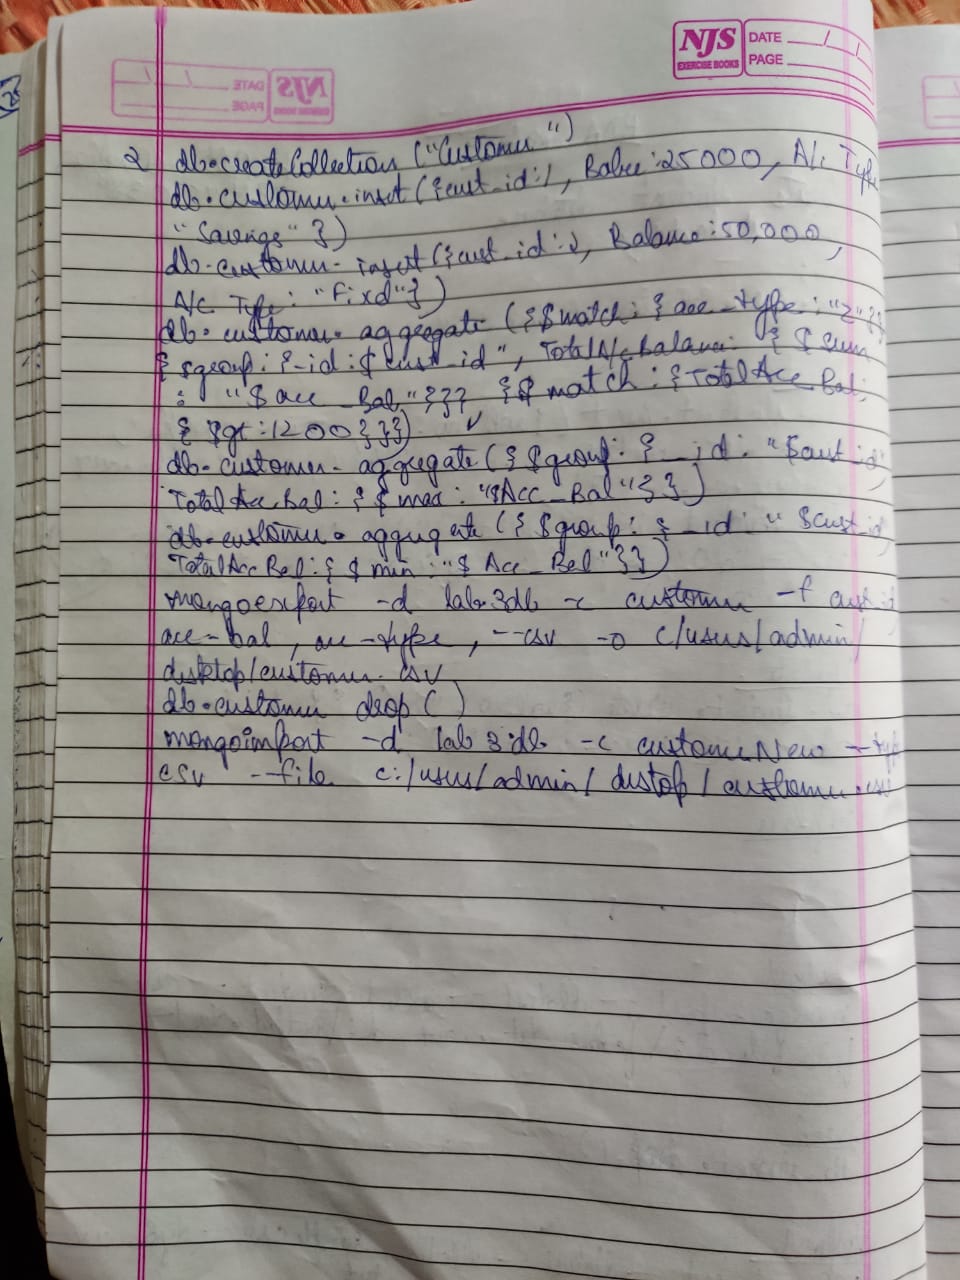 NJS
EXERCISE BOOKS
DATE
PAGE
2 db.createCollection ("Customer")
db.customer.insert ({cust_id:1, Balance:25000, A/c Type
"Savings" })
db.customer.insert ({cust_id:2, Balance:50,000,
A/c Type: "Fixd"})
db.customer.aggregate ({$match: {acc_type: "Z"}}
{$group: {_id:$cust_id", TotalA/cbalance: { $ sum
: "$ acc _Bal"}}} {$ match: {TotalAcc Bal:
{ $gt:1200}}})
db.customer.aggregate ({ $group: { _id: "$cust_id
Total Acc.Bal: { $ max: "$Acc_Bal"}})
db.customer.aggregate ({ $group: { _id: " $cust_id
TotalAcc Bal: { $ min: "$ Acc_Bal"}})
mongoexport -d lab3db -c customer -f cust_id
acc-bal, acc-type, --csv -o c/users/admin/
desktop/customer.csv
db.customer drop()
mongoimport -d lab3db -c customerNew --type
csv --file c:/users/admin/ desktop / customer.csv